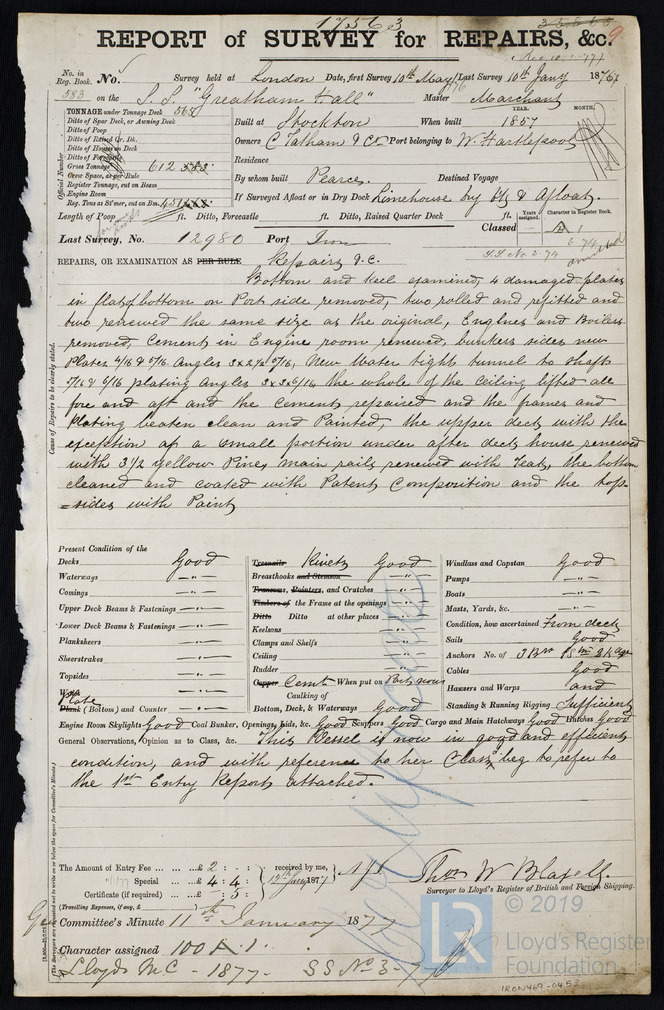 17563
REPORT of SURVEY for REPAIRS, &c.
No. in Reg. Book. No. Survey held at London Date, first Survey 10th May/76 Last Survey 10th Jany 1877
583 on the S.S. "Greatham Hall" Master Marchant
TONNAGE under Tonnage Deck 565
Ditto of Spar Deck, or Awning Deck
Ditto of Poop
Ditto of Raised Qr. Dk.
Ditto of Houses on Deck
Ditto of Forecastle
Gross Tonnage 612
Crew Space, as per Rule
Register Tonnage, cut on Beam
Engine Room
Reg. Tons as St'mer, cut on Bm.
Official Number
Built at Stockton When built 1857
YEAR. MONTH.
Owners C Tatham & Co Port belonging to W. Hartlepool
Residence
By whom built Pearce. Destined Voyage
If Surveyed Afloat or in Dry Dock Limehouse by &c & Afloat.
Length of Poop ft. Ditto, Forecastle ft. Ditto, Raised Quarter Deck ft.
Years assigned. Character in Register Book.
Classed A 1
6 74
Last Survey, No. 12980 Port Iron
S.S. No 3-74
REPAIRS, OR EXAMINATION AS PER RULE Repairs &c.
Bottom and Keel examined, 4 damaged plates
in flat of bottom on Port side removed, two rolled and refitted and
two renewed the same size as the original, Engines and Boilers
removed, Cement in Engine room renewed, bunkers sides new
Plates 4/16 & 5/16 Angles 3 x 2 1/2 5/16, New Water tight tunnel to shaft
7/16 & 6/16 plating angles 3 x 3 x 6/16, the whole of the Ceiling lifted all
fore and aft and the Cement repaired and the frames and
plating beaten clean and Painted, the upper deck with the
exception of a small portion under after deck house renewed
with 3 1/2 yellow Pine, main rails renewed with Teak, the bottom
cleaned and coated with Patent Composition and the top=
=sides with Paint
Cause of Repairs to be clearly stated.
Present Condition of the
Decks Good
Waterways —"—
Comings —"—
Upper Deck Beams & Fastenings —"—
Lower Deck Beams & Fastenings —"—
Planksheers —"—
Sheerstrakes —"—
Topsides —"—
Wales
Plate
Plank (Bottom) and Counter —"—
Treenails Rivets Good
Breasthooks and Stemson —"—
Transoms, Pointers, and Crutches —"—
Timbers of the Frame at the openings —"—
Ditto Ditto at other places —"—
Keelsons —"—
Clamps and Shelfs —"—
Ceiling —"—
Rudder —"—
Copper Cemt When put on Part now
Caulking of
Bottom, Deck, & Waterways Good
Windlass and Capstan Good
Pumps —"—
Boats —"—
Masts, Yards, &c. —"—
Condition, how ascertained From deck
Sails Good
Anchors No. of 3 Brs 1 Stm 2 Kdge
Cables Good
Hawsers and Warps and
Standing & Running Rigging Sufficient
Engine Room Skylights Good Coal Bunker, Openings, Lids, &c. Good Scuppers Good Cargo and Main Hatchways Good Hatches Good
General Observations, Opinion as to Class, &c. This Vessel is now in good and efficient
condition, and with reference to her Class beg to refer to
the 1st Entry Report attached.
The Amount of Entry Fee ... ... ... £ 2 : :
Special ... ... £ 4 : 4 :
Certificate (if required) ... ... £ : 5 :
(Travelling Expenses, if any, £ )
received by me,
12th Jany 1877
Thos W Blaxell.
Surveyor to Lloyd's Register of British and Foreign Shipping.
Committee's Minute 11th January 1877
Character assigned 100 A. 1.
Lloyds M.C - 1877. S S No 3-
© 2019
LR
Lloyd's Register
Foundation
IRON469-0453